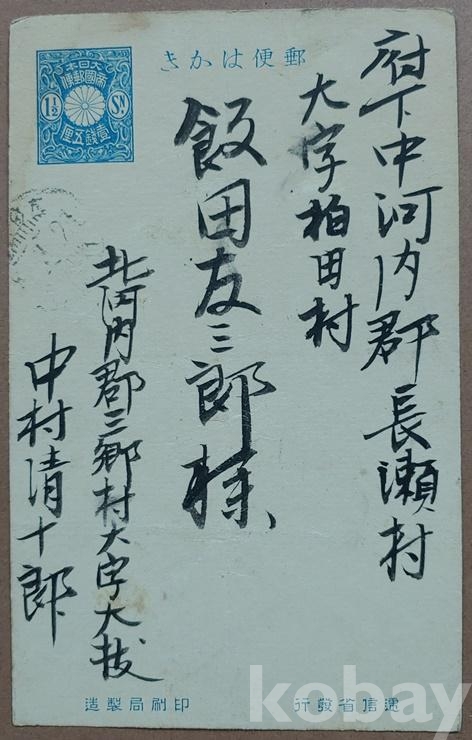 郵便はかき
大日本
帝國郵便
1½ SN
壹錢五厘
府下中河内郡長瀬村
大字柏田村
飯田友三郎様
北河内郡三郷村大字大枝
中村清十郎
遞信省發行
印刷局製造
kobay